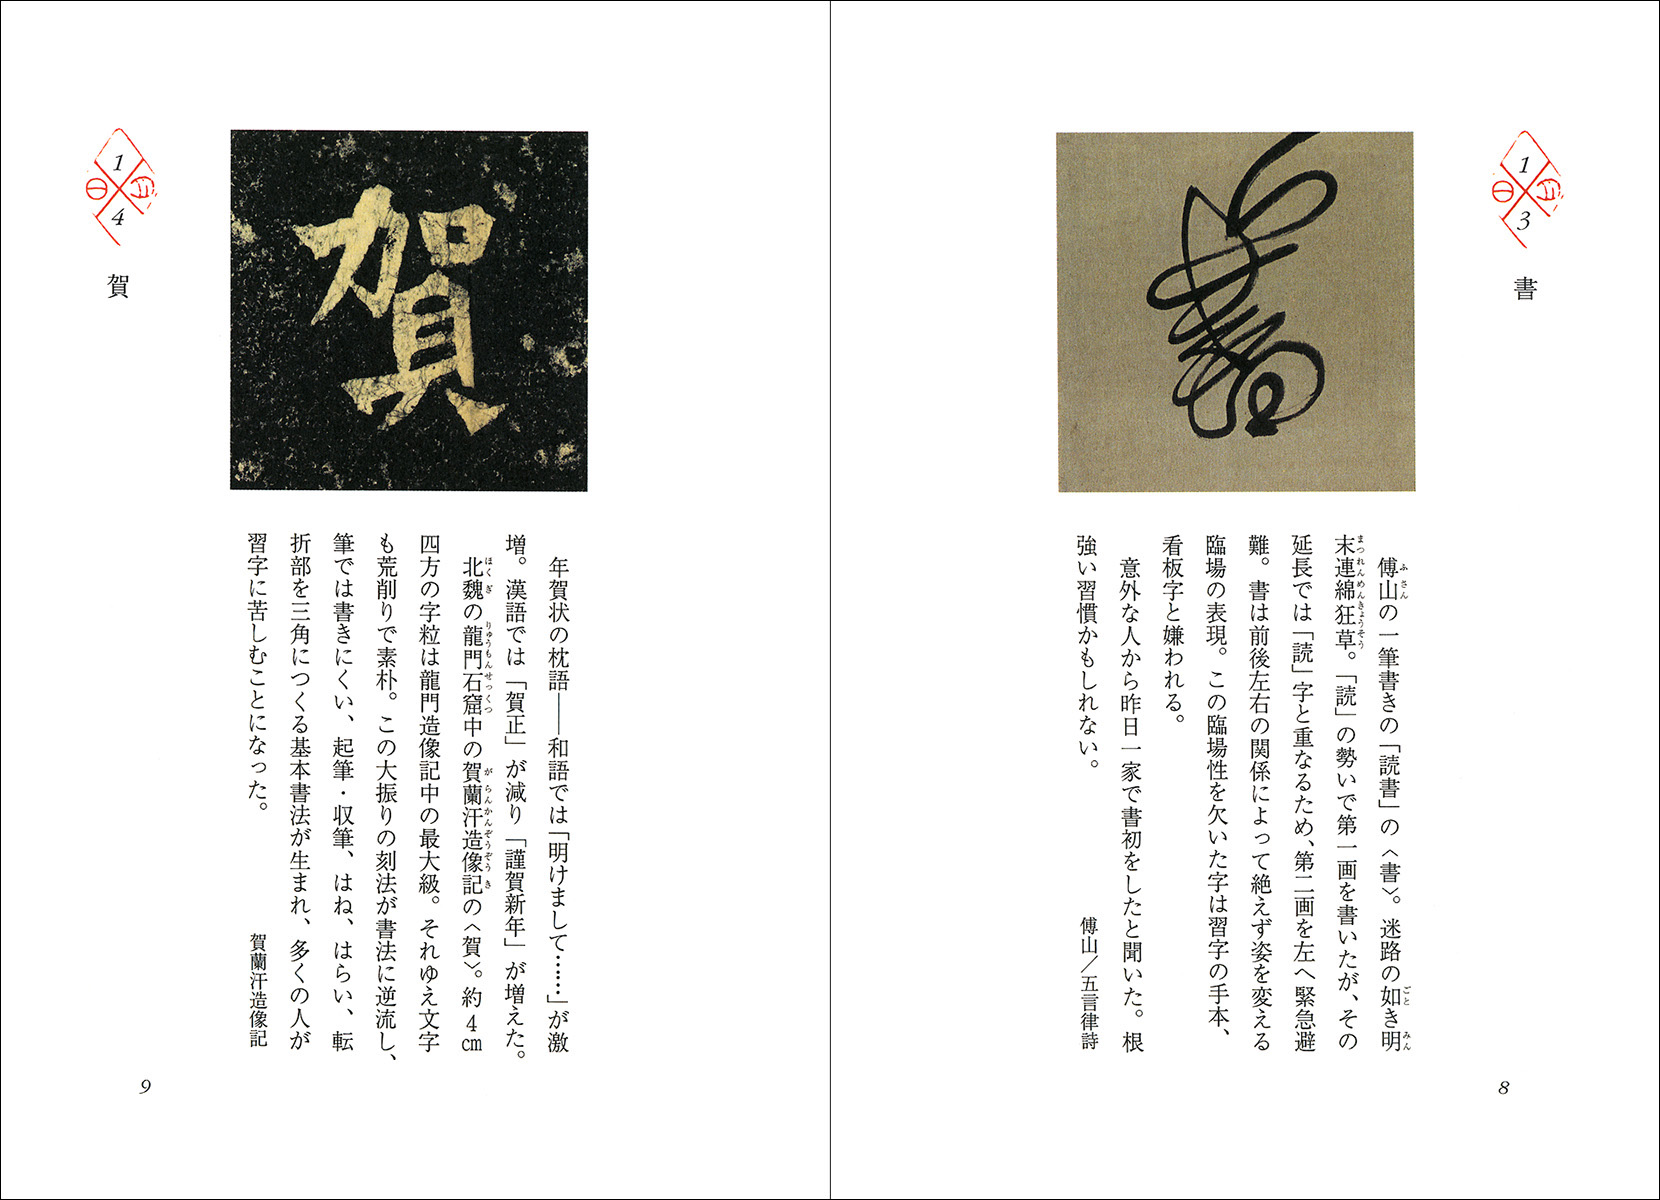 1
月
日
3
書
書
傅山の一筆書きの「読書」の〈書〉。迷路の如き明
末連綿狂草。「読」の勢いで第一画を書いたが、その
延長では「読」字と重なるため、第二画を左へ緊急避
難。書は前後左右の関係によって絶えず姿を変える
臨場の表現。この臨場性を欠いた字は習字の手本、
看板字と嫌われる。
意外な人から昨日一家で書初をしたと聞いた。根
強い習慣かもしれない。
傅山／五言律詩
8
1
月
日
4
賀
賀
年賀状の枕語――和語では「明けまして……」が激
増。漢語では「賀正」が減り「謹賀新年」が増えた。
北魏の龍門石窟中の賀蘭汗造像記の〈賀〉。約4cm
四方の字粒は龍門造像記中の最大級。それゆえ文字
も荒削りで素朴。この大振りの刻法が書法に逆流し、
筆では書きにくい、起筆・収筆、はね、はらい、転
折部を三角につくる基本書法が生まれ、多くの人が
習字に苦しむことになった。
賀蘭汗造像記
9